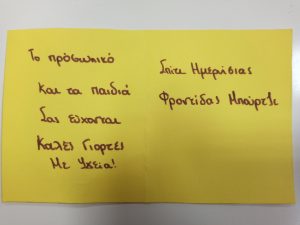 Το προσωπικό
και τα παιδιά
Σας εύχονται
Καλές Γιορτές
Με Υγεία!
Σπίτι Ημερήσιας
Φροντίδας Μπάρτζι